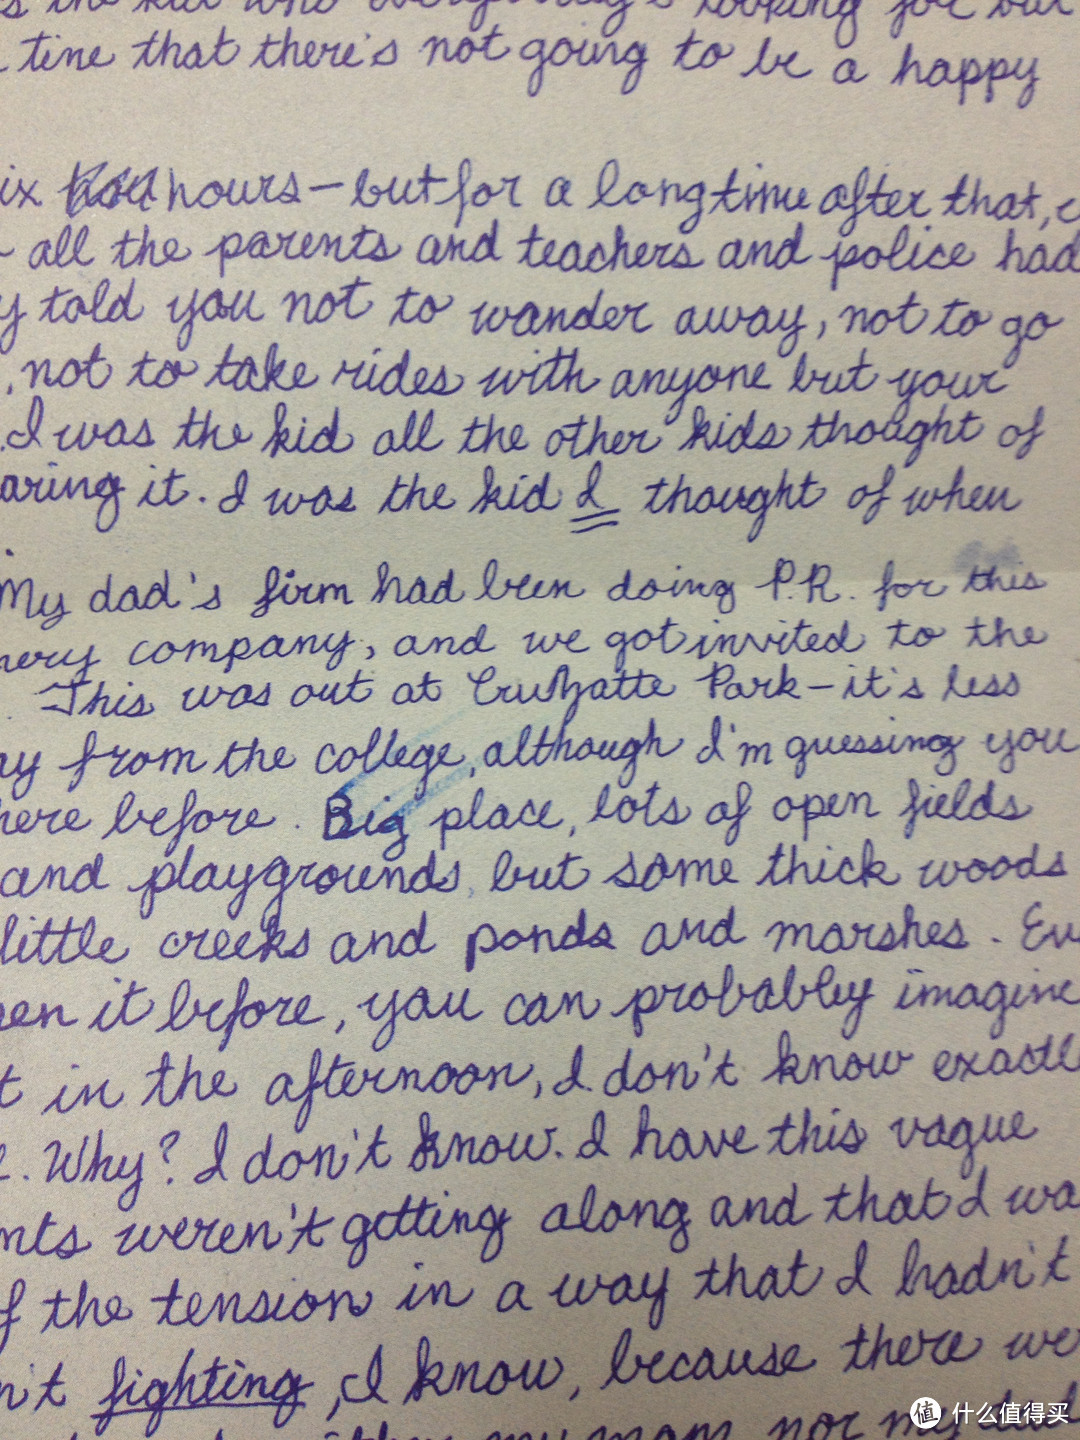 s the kid who everybody's looking for but
time that there's not going to be a happy
ix hours—but for a long time after that,
all the parents and teachers and police had
y told you not to wander away, not to go
, not to take rides with anyone but your
. I was the kid all the other kids thought of
aring it. I was the kid I thought of when
My dad's firm had been doing P.R. for this
nery company, and we got invited to the
. This was out at Cruzatte Park—it's less
ay from the college, although I'm guessing you
here before. Big place, lots of open fields
and playgrounds, but some thick woods
little creeks and ponds and marshes. Ev
een it before, you can probably imagine
t in the afternoon, I don't know exactl
. Why? I don't know. I have this vague
nts weren't getting along and that I wa
f the tension in a way that I hadn't
n't fighting, I know, because there we
my mom nor my dad
值 什么值得买